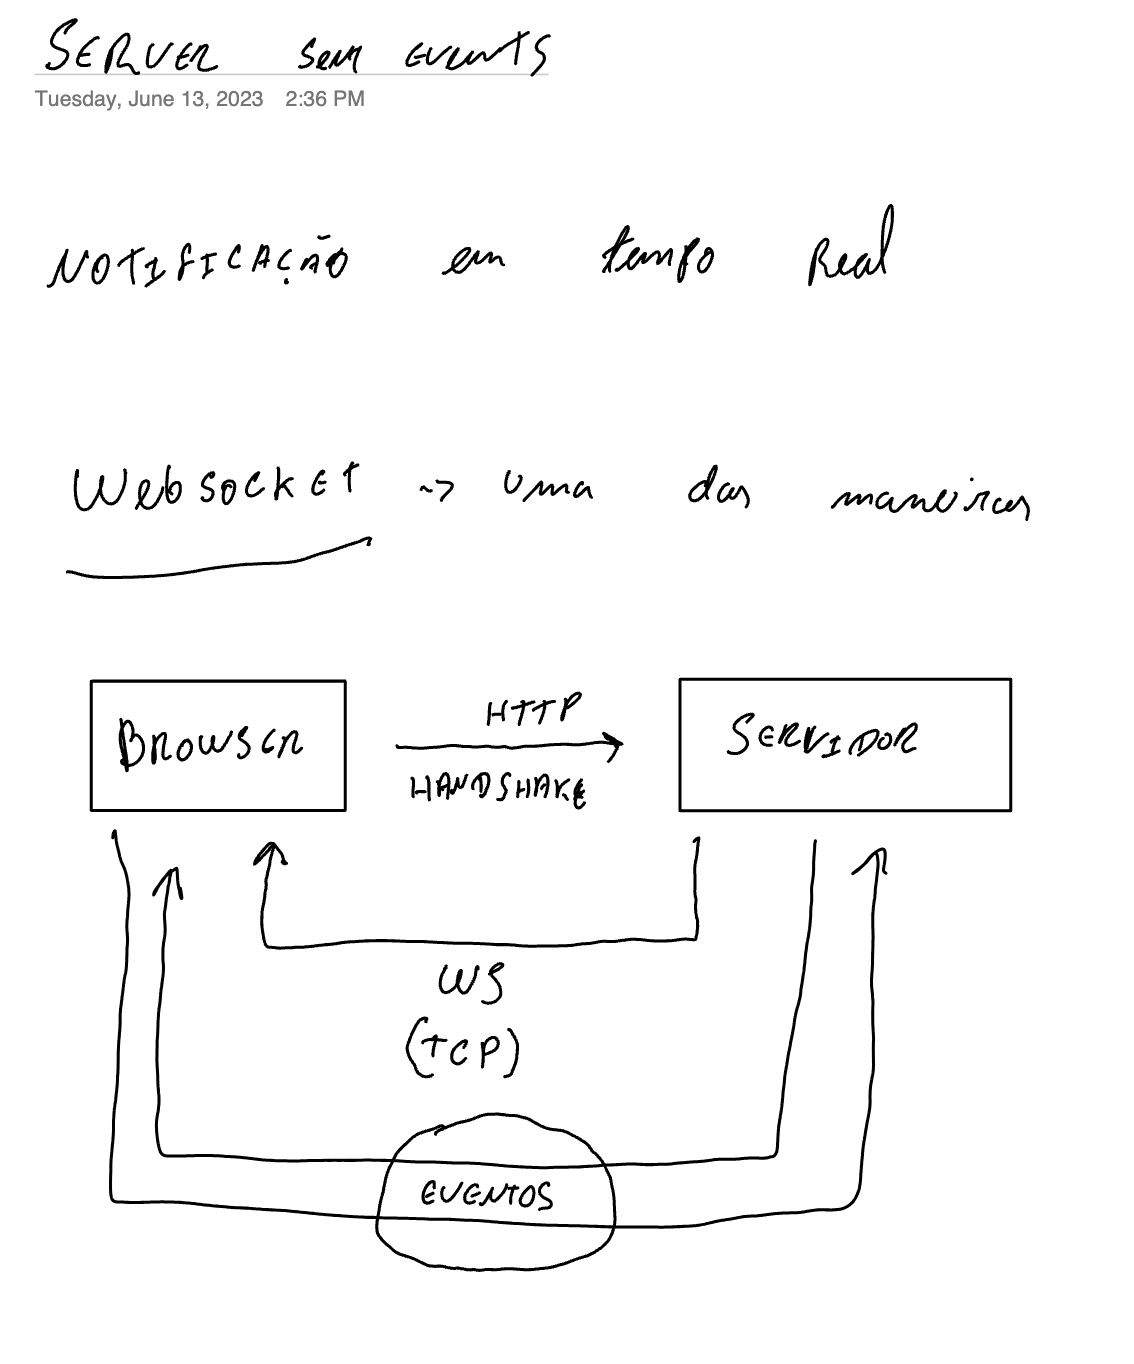 SERVER sem events
Tuesday, June 13, 2023 2:36 PM
NOTIFICAÇÃO em tempo Real
Websocket ~> uma das maneiras
BROWSER
HTTP
HANDSHAKE
SERVIDOR
WS
(TCP)
EVENTOS